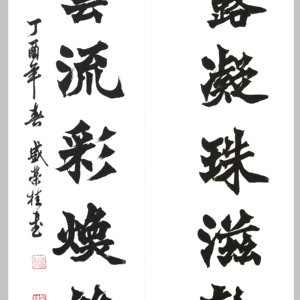 露凝珠滋
雲流彩煥
丁酉年春 盛荣桂书